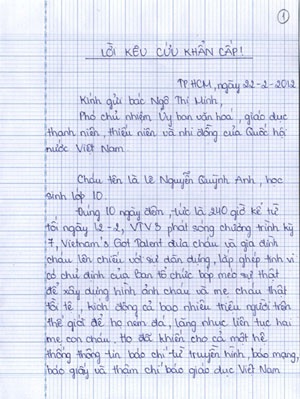 1
LỜI KÊU CỨU KHẨN CẤP!
TP HCM, ngày 22-2-2012
Kính gửi bác Ngô Thị Minh,
Phó chủ nhiệm Ủy ban văn hoá, giáo dục
thanh niên, thiếu niên và nhi đồng của Quốc hội
nước Việt Nam
Cháu tên là Lê Nguyễn Quỳnh Anh, học
sinh lớp 10.
Đúng 10 ngày đêm, tức là 240 giờ kể từ
tối ngày 12-2, VTV3 phát sóng chương trình kỳ
7, Vietnam's Got Talent đưa cháu và gia đình
cháu lên chiếu với sự dàn dựng, lắp ghép tinh vi
có chủ đích của Ban tổ chức bóp méo sự thật
để xây dựng hình ảnh cháu và mẹ cháu thật
tồi tệ, kích động cả bao nhiêu triệu người trên
thế giới để họ ném đá, lăng nhục liên tục hai
mẹ con cháu. Họ đã khiến cho cả một hệ
thống thông tin báo chí từ truyền hình, báo mạng,
báo giấy và thậm chí báo giáo dục Việt Nam